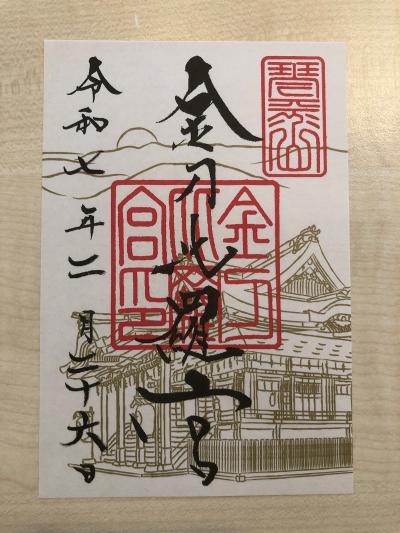 琴平山
金刀比羅宮
金刀
比羅
宮印
令和七年三月二十六日